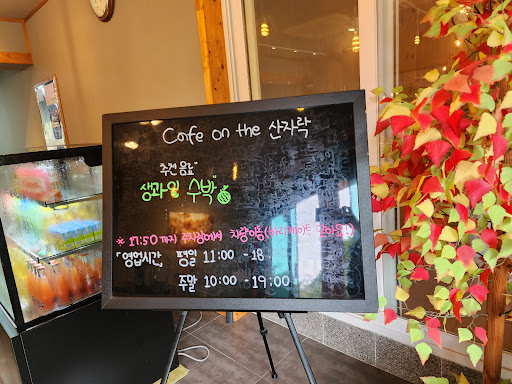 Cafe on the 산자락
추천 음료
생과일 수박
* 17:50까지 주차장에서 차량이동
「영업시간 평일 11:00 -18
주말 10:00 -19:00